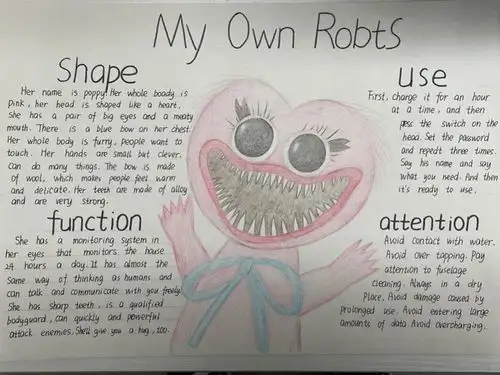 My Own Robts
Shape
Her name is poppy. Her whole boady is
pink, her head is shaped like a heart.
She has a pair of big eyes and a meaty
mouth. There is a blue bow on her chest.
Her whole body is furry, people want to
touch. Her hands are small but clever,
can do many things. The bow is made
of wool, which makes people feel warm
and delicate. Her teeth are made of alloy
and are very strong.
function
She has a monitoring system in
her eyes that monitors the house
24 hours a day. It has almost the
Same way of thinking as humans and
can talk and communicate with you freely.
She has sharp teeth, is a qualified
bodyguard, can quickly and powerful
attack enemies. She'll give you a hug, too.
use
First, charge it for an hour
at a time, and then
press the switch on the
head. Set the password
and repedt three times.
Say his name and say
what you need. And then
it's ready to use.
attention
Avoid contact with water.
Avoid over tapping. Pay
attention to fuselage
cleaning. Always in a dry
Place. Avoid damage caused by
prolonged use. Avoid entering large
amounts of data. Avoid overcharging.